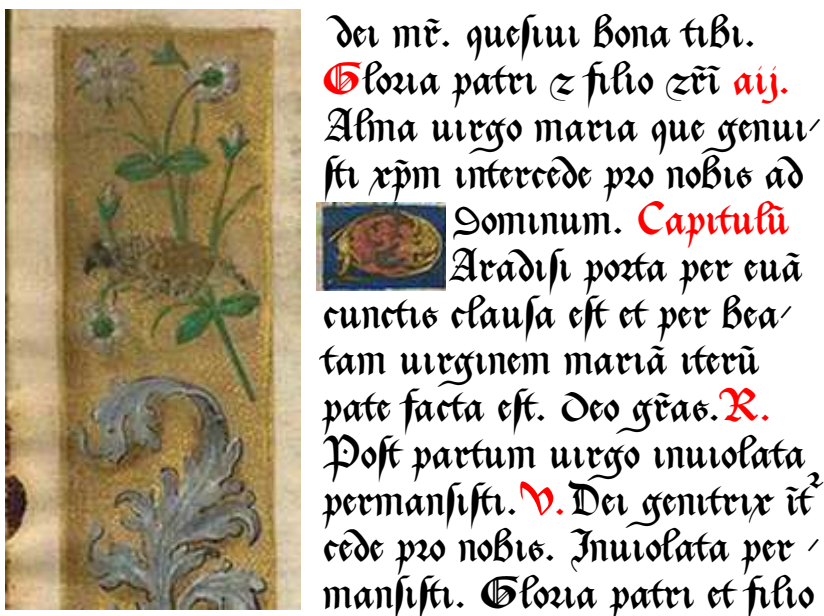 dei mr̃. quesiui bona tibi.
Gloria patri ⁊ filio ⁊r̃i aij.
Alma uirgo maria que genui/
sti xp̃m intercede pro nobis ad
Dominum. Capitulũ
Aradisi porta per euã
cunctis clausa est et per bea/
tam uirginem mariã iterũ
pate facta est. Deo gr̃as. R.
Post partum uirgo inuiolata
permansisti. V. Dei genitrix ĩt᷑
cede pro nobis. Inuiolata per /
mansisti. Gloria patri et filio